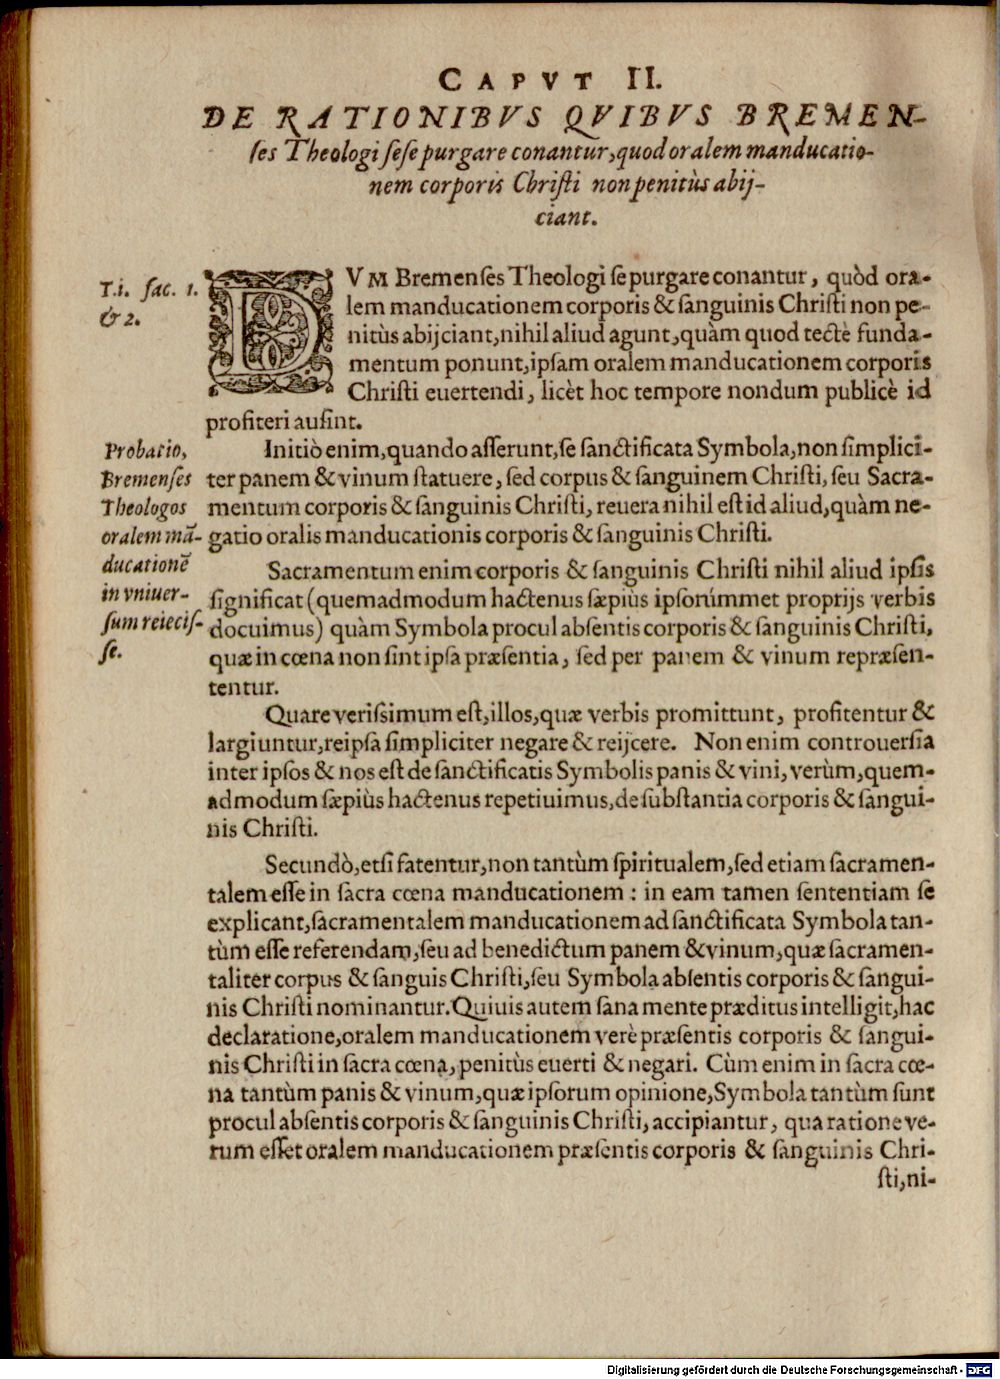 CAPVT II.
DE RATIONIBVS QVIBVS BREMEN-
ſes Theologi ſeſe purgare conantur, quod oralem manducatio-
nem corporis Chriſti non penitùs abij-
ciant.
T.i. fac. 1.
& 2.
DVM Bremenſes Theologi ſe purgare conantur, quòd ora-
lem manducationem corporis & ſanguinis Chriſti non pe-
nitùs abijciant, nihil aliud agunt, quàm quod tectè funda-
mentum ponunt, ipſam oralem manducationem corporis
Chriſti euertendi, licèt hoc tempore nondum publicè id
profiteri auſint.
Probatio,
Bremenſes
Theologos
oralem mā-
ducationē
in vniuer-
ſum reieciſ-
ſe.
Initiò enim, quando aſſerunt, ſe ſanctificata Symbola, non ſimplici-
ter panem & vinum ſtatuere, ſed corpus & ſanguinem Chriſti, ſeu Sacra-
mentum corporis & ſanguinis Chriſti, reuera nihil eſt id aliud, quàm ne-
gatio oralis manducationis corporis & ſanguinis Chriſti.
Sacramentum enim corporis & ſanguinis Chriſti nihil aliud ipſis
ſignificat (quemadmodum hactenus ſæpiùs ipſorumimmet proprijs verbis
docuimus) quàm Symbola procul abſentis corporis & ſanguinis Chriſti,
quæ in cœna non ſint ipſa præſentia, ſed per panem & vinum repræſen-
tentur.
Quare veriſsimum eſt, illos, quæ verbis promittunt, profitentur &
largiuntur, reipſa ſimpliciter negare & reijcere. Non enim controuerſia
inter ipſos & nos eſt de ſanctificatis Symbolis panis & vini, verùm, quem-
admodum ſæpiùs hactenus repetiuimus, de ſubſtantia corporis & ſangui-
nis Chriſti.
Secundò, etſi fatentur, non tantùm ſpiritualem, ſed etiam ſacramen-
talem eſſe in ſacra cœna manducationem : in eam tamen ſententiam ſe
explicant, ſacramentalem manducationem ad ſanctificata Symbola tan-
tùm eſſe referendam, ſeu ad benedictum panem & vinum, quæ ſacramen-
taliter corpus & ſanguis Chriſti, ſeu Symbola abſentis corporis & ſangui-
nis Chriſti nominantur. Quiuis autem ſana mente præditus intelligit, hac
declaratione, oralem manducationem verè præſentis corporis & ſangui-
nis Chriſti in ſacra cœna, penitùs euerti & negari. Cùm enim in ſacra cœ-
na tantùm panis & vinum, quæ ipſorum opinione, Symbola tantùm ſunt
procul abſentis corporis & ſanguinis Chriſti, accipiantur, qua ratione ve-
rum eſſet oralem manducationem præſentis corporis & ſanguinis Chri-
ſti, ni-
Digitalisierung gefördert durch die Deutsche Forschungsgemeinschaft - DFG